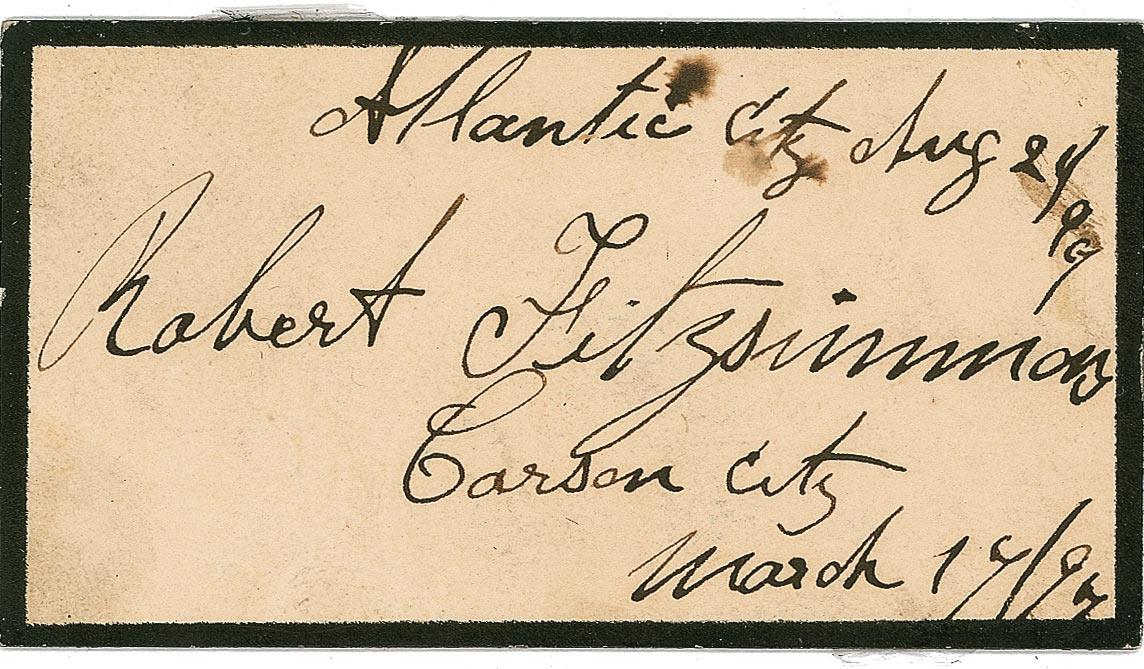 Atlantic City Aug 29/99
Robert Fitzsimmons
Carson City
March 17/97